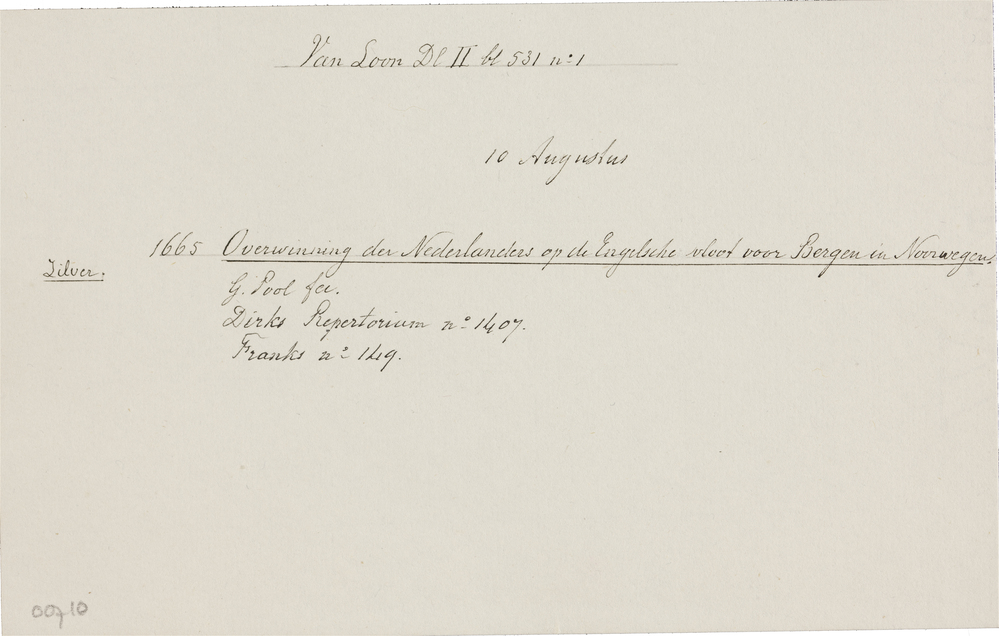 Van Loon Dl II bl 531 no 1
10 Augustus
1665 Overwinning der Nederlanders op de Engelsche vloot voor Bergen in Noorwegen.
Zilver.
G. Pool fec.
Dirks Repertorium no 1407.
Franks no 149.
00710